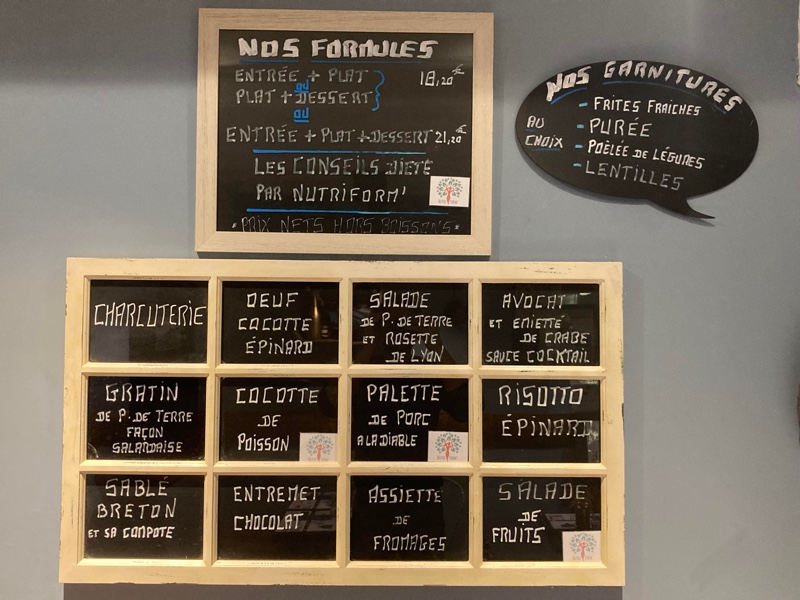 NOS FORMULES
ENTRÉE + PLAT 18,20€
OU
PLAT + DESSERT
OU
ENTRÉE + PLAT + DESSERT 21,20€
LES CONSEILS DIETE
PAR NUTRIFORM'
"PRIX NETS HORS BOISSONS"
NOS GARNITURES
AU CHOIX
- FRITES FRAICHES
- PURÉE
- POÊLÉE DE LÉGUMES
- LENTILLES
CHARCUTERIE
OEUF
COCOTTE
ÉPINARD
SALADE
DE P. DE TERRE
ET ROSETTE
DE LYON
AVOCAT
ET EMIETTÉ
DE CRABE
SAUCE COCKTAIL
GRATIN
DE P. DE TERRE
FAÇON
SALARDAISE
COCOTTE
DE
POISSON
PALETTE
DE PORC
A LA DIABLE
RISOTTO
ÉPINARD
SABLÉ
BRETON
ET SA COMPOTE
ENTREMET
CHOCOLAT
ASSIETTE
DE
FROMAGES
SALADE
DE
FRUITS